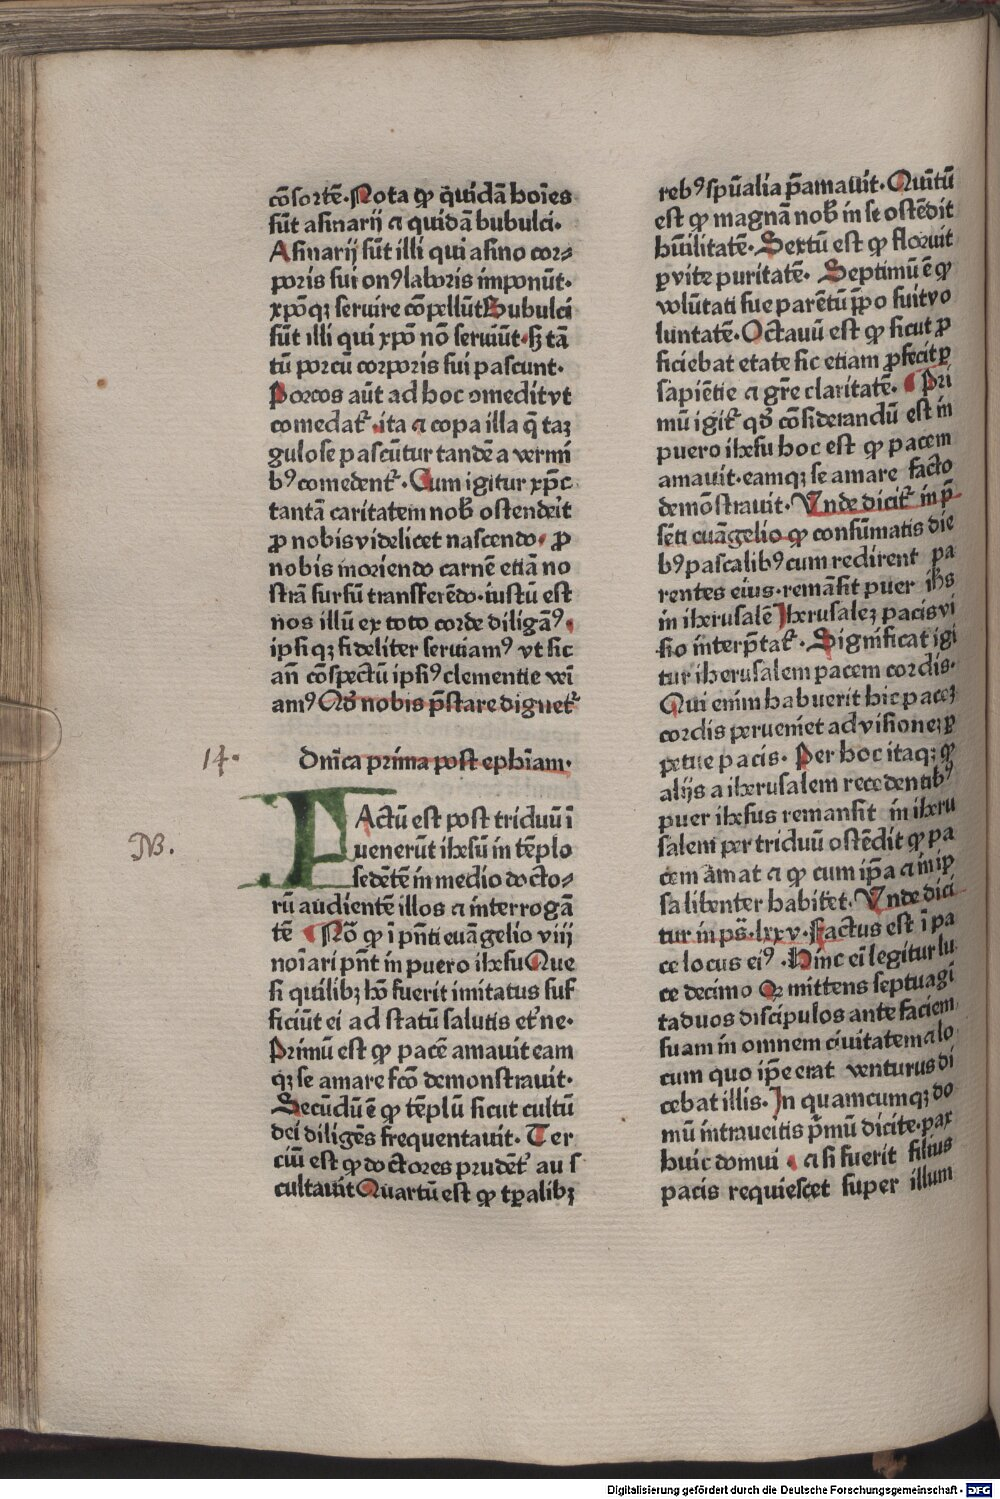 cōsortē. Nota ꝙ q̄uidā hoīes
sūt asinarij ⁊ quidā bubulci.
Asinarij sūt illi qui asino cor⸗
poris sui onꝰ laboris imponūt.
xpōqꝫ seruire cōpellūt Bubulci
sūt illi qui xpō nō seruiūt. sꝫ tā
tū porcū corporis sui pascunt.
Porcos aūt ad hoc omedit vt
comedat᷑. ita ⁊ copa illa q̄ taꝫ
gulose pascūtur tandē a vermi
bꝰ comedent᷑. Cum igitur xp̄c
tantā caritatem nob̄ ostenderit
ꝓ nobis videlicet nascendo. ꝓ
nobis moriendo carnē etiā no
strā sursū transferēdo. iustū est
nos illū ex toto corde diligāꝰ.
ipsiqꝫ fideliter seruiamꝰ vt sic
an̄ cōspectū ipsiꝰ clementie veni
amꝰ Qd̄ nobis p̄stare dignet᷑
14.
Dnīca prima post ephīam.
NB.
FActū est post triduū ī
uenerūt ihesū in tēplo
sedētē in medio docto⸗
rū audientē illos ⁊ interrogā
tē Nō ꝙ ī pn̄ti euāgelio viij
noīari pn̄t in puero ihesu Que
si quilibꝫ hō fuerit imitatus suf
ficiūt ei ad statū salutis et᷑ne.
Primū est ꝙ pacē amauit eam
qꝫ se amare fcō demonstrauit.
Secūdū ē ꝙ tēplū sicut cultū
dei diligēs frequentauit. Ter
ciū est ꝙ doctores prudēt᷑ aus
cultauit Quartū est ꝙ tꝑalibꝫ
rebꝰ spūalia p̄amauit. Quītū
est ꝙ magnā nob̄ in se ostēdit
hūilitatē. Sextū est ꝙ floruit
ꝑ vite puritatē. Septimū ē ꝙ
volūtati sue parētū p̄po fuit vo
luntatē. Octauū est ꝙ sicut ꝓ
ficiebat etate sic etiam ꝓfecit ꝑ
sapiētie ⁊ gr̄e claritatē. Pri
mū igit᷑ qd̄ cōsiderandū est in
puero ihesu hoc est ꝙ pacem
amauit. eamqꝫ se amare facto
demōstrauit. Vnde dicit᷑ in p̄
sēti euāgelio ꝙ consūmatis die
bꝰ pascalibꝰ cum redirent pa
rentes eius. remāsit puer ihs
in iherusalē Jherusaleꝫ pacis vi
sio interp̄tat᷑. Significat igi
tur iherusalem pacem cordis.
Qui enim habuerit hic paceꝫ
cordis perueniet ad visioneꝫ ꝑ
petue pacis. Per hoc itaqꝫ ꝙ
alijs a iherusalem recedentibꝰ
puer ihesus remansit in iheru
salem per triduū ostēdit ꝙ pa
cem amat ⁊ ꝙ cum ip̄a ⁊ in ip̄
sa libenter habitet. Vnde dici
tur in ps̄. lxxv. Factus est ī pa
ce locus eiꝰ. Hinc eī legitur lu
ce decimo Qꝫ mittens septuagī
taduos discipulos ante faciem
suam in omnem ciuitatem ⁊ lo
cum quo ip̄e erat venturus di
cebat illis. In quamcumqꝫ do
mū intraueitis p̄mū dicite. pax
huic domui ⁊ si fuerit filius
pacis requiescet super illum
Digitalisierung gefördert durch die Deutsche Forschungsgemeinschaft - DFG